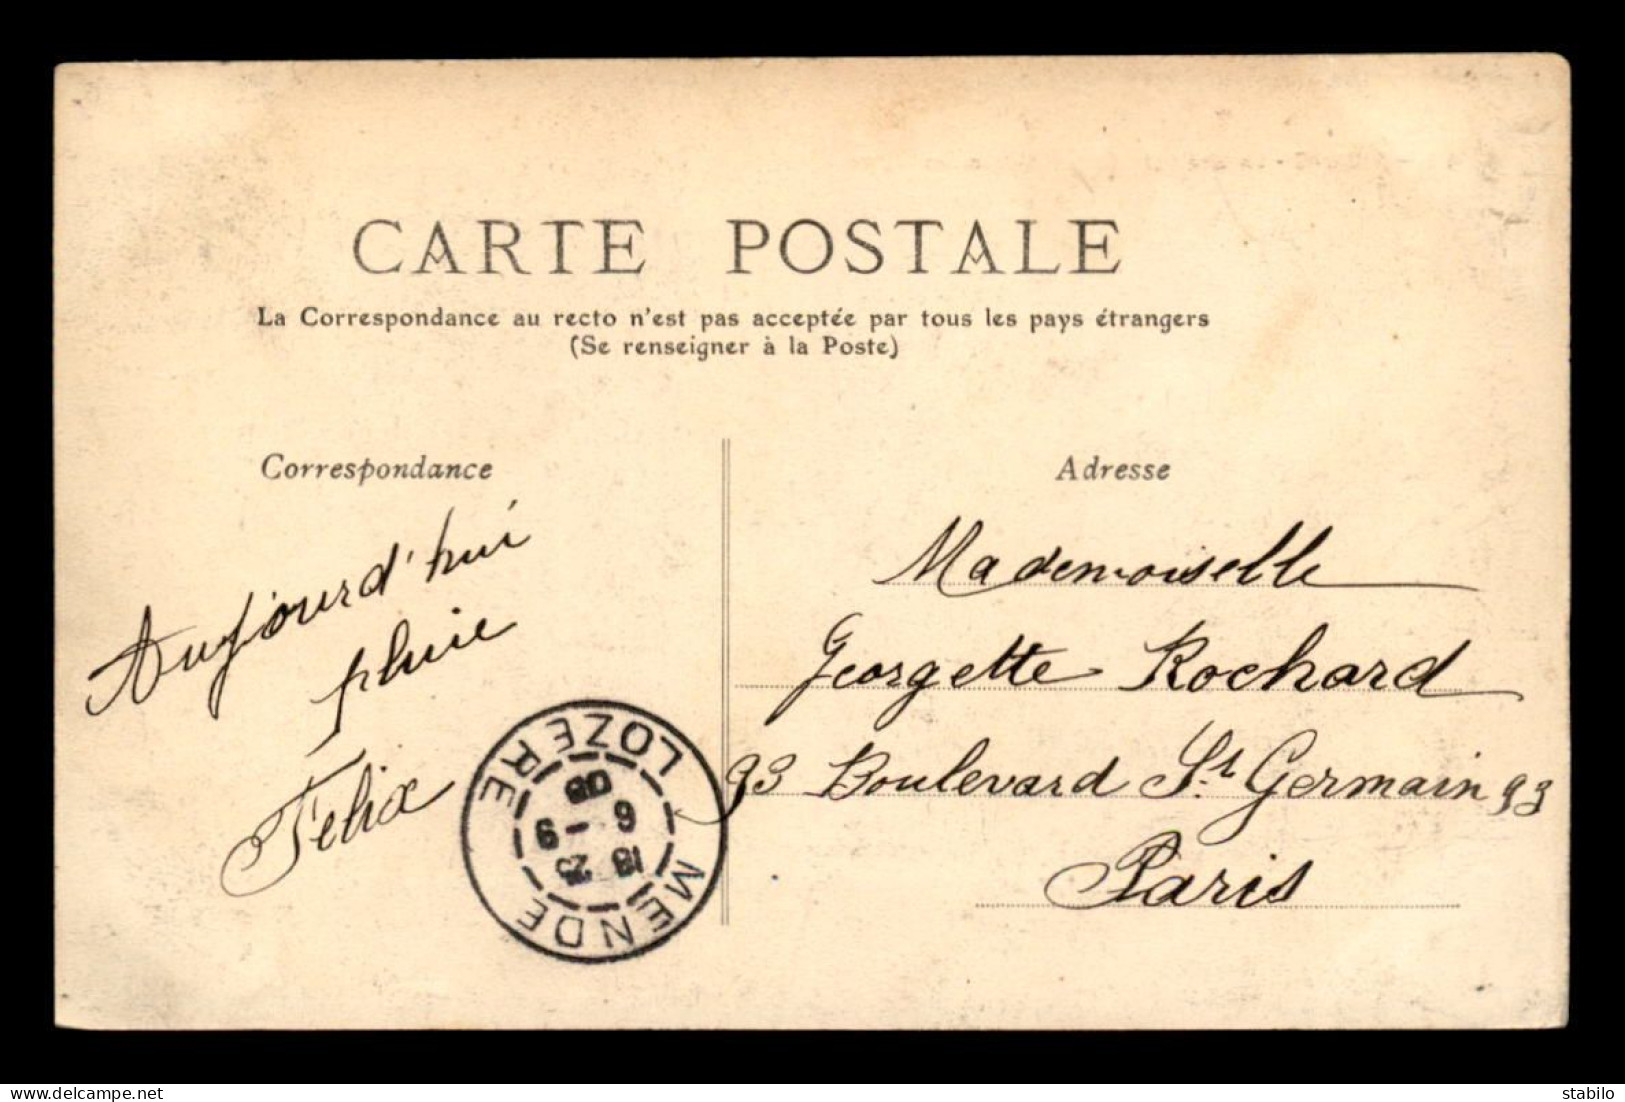 CARTE POSTALE
La Correspondance au recto n'est pas acceptée par tous les pays étrangers
(Se renseigner à la Poste)
Correspondance
Aujourd'hui
pluie
Felix
Adresse
Mademoiselle
Georgette Rochard
93 Boulevard St Germain 93
Paris
MENDE
LOZERE
6 - 9
delcampe.net
stabilo